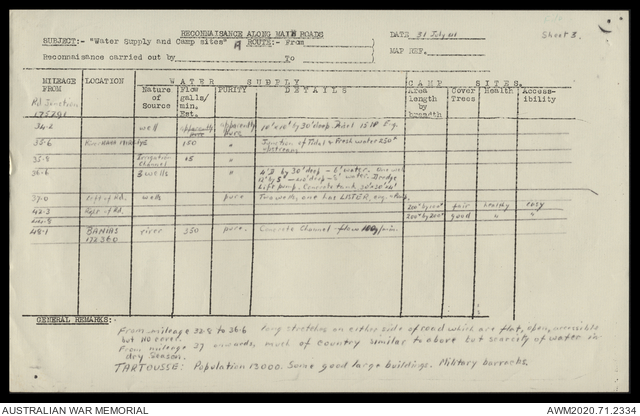 RECONNAISANCE ALONG MAIN ROADS DATE 31 July 41 Sheet 3.
SUBJECT:- "Water Supply and Camp sites" A ROUTE:- From
MAP REF.
Reconnaisance carried out by To
WATER SUPPLY CAMP SITES.
MILEAGE FROM LOCATION Nature of Source Flow galls/ min. Est. PURITY DETAILS Area length by breadth Cover Trees Health Access- ibility
Rd Junction
175291
34-2 well apparently pure 10' x 10' by 30' deep
35-6 150 " Junction of Tidal & Fresh water 250x upstream
35-8 Irrigation Channel 15 "
36-6 3 wells " 4' D by 30' deep - 6' water. One well
12' by 5' Bridge
Lift pump. Concrete tank
37-0 Left of Rd. wells pure Two wells, one has LISTER eng. & Pump.
42-3 Right of Rd. 200x by 100x fair healthy easy
200x by 200x good " "
48-1 BANIAS river 350 pure. Concrete Channel - flow
172360
GENERAL REMARKS:-
From mileage 32-8 to 36-6 long stretches on either side of road which are flat, open, accessible
but no cover.
From mileage 37 onwards, much of country similar to above but scarcity of water in
dry season.
TARTOUSSE: Population 13000. Some good large buildings. Military barracks.
AUSTRALIAN WAR MEMORIAL AWM2020.71.2334